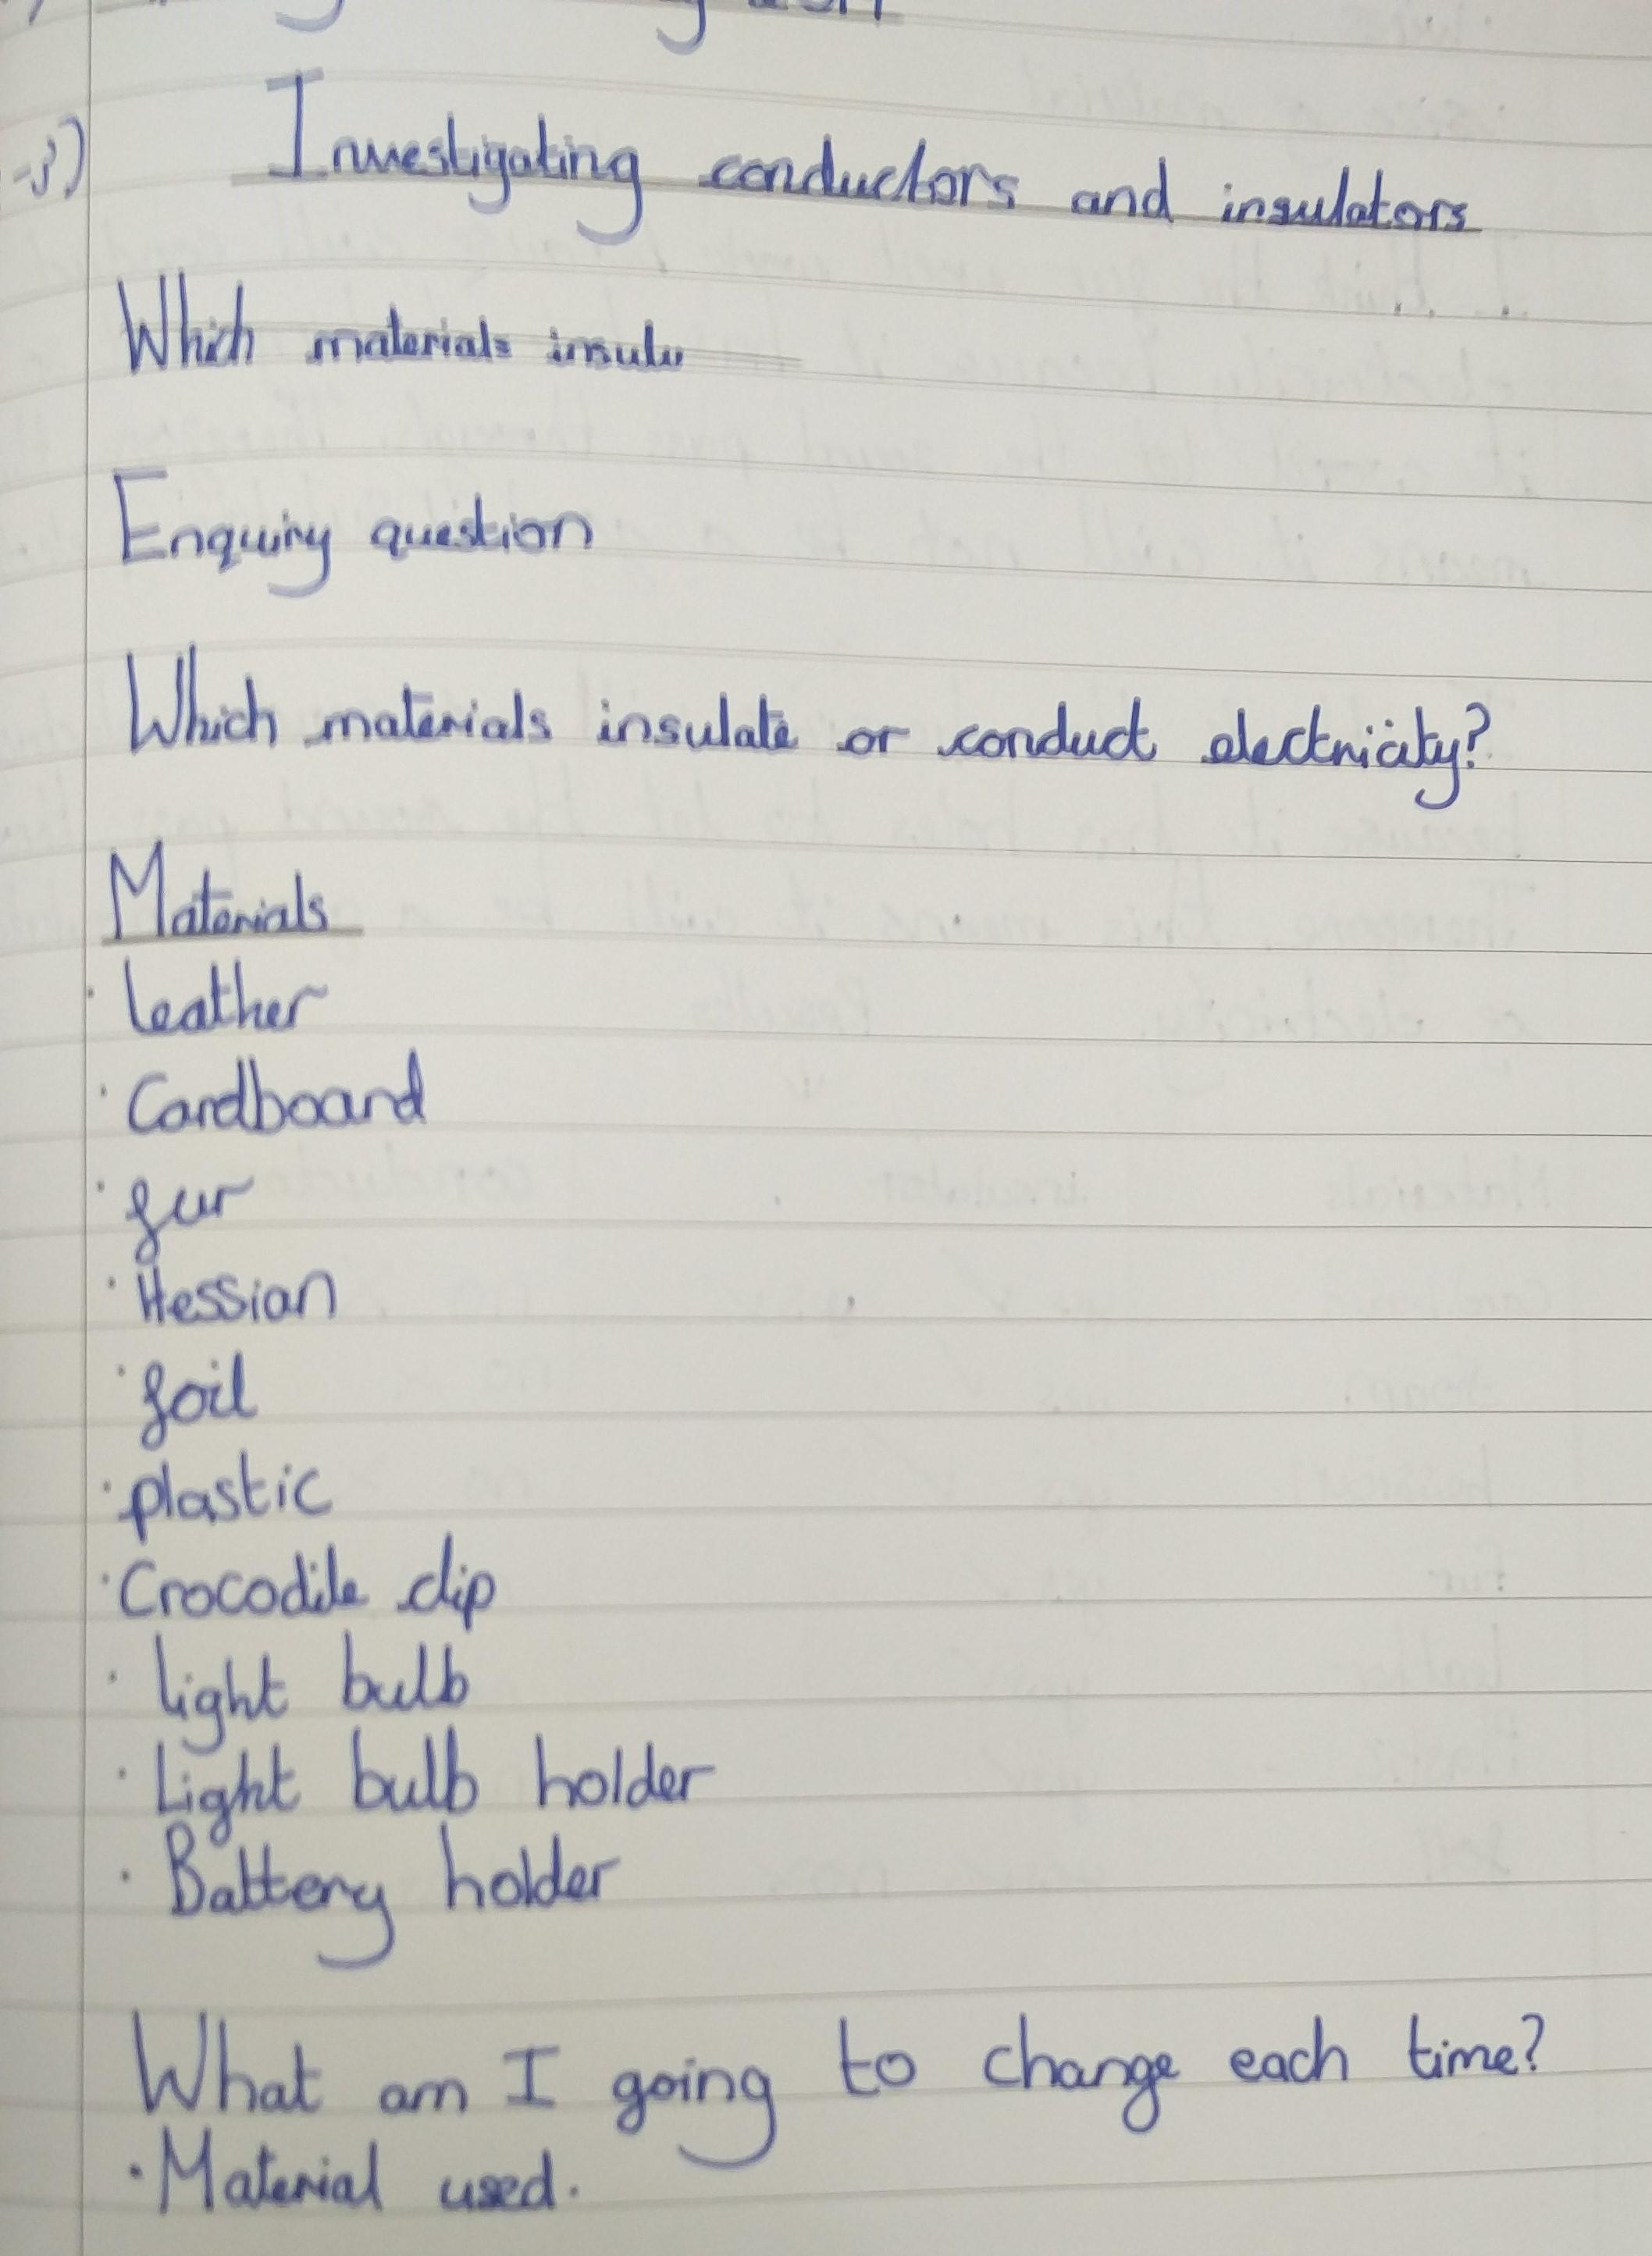 Investigating conductors and insulators
Which materials insula
Enquiry question
Which materials insulate or conduct electricity?
Materials
· leather
· Cardboard
· fur
· Hessian
· foil
· plastic
· Crocodile clip
· light bulb
· Light bulb holder
· Battery holder
What am I going to change each time?
· Material used.